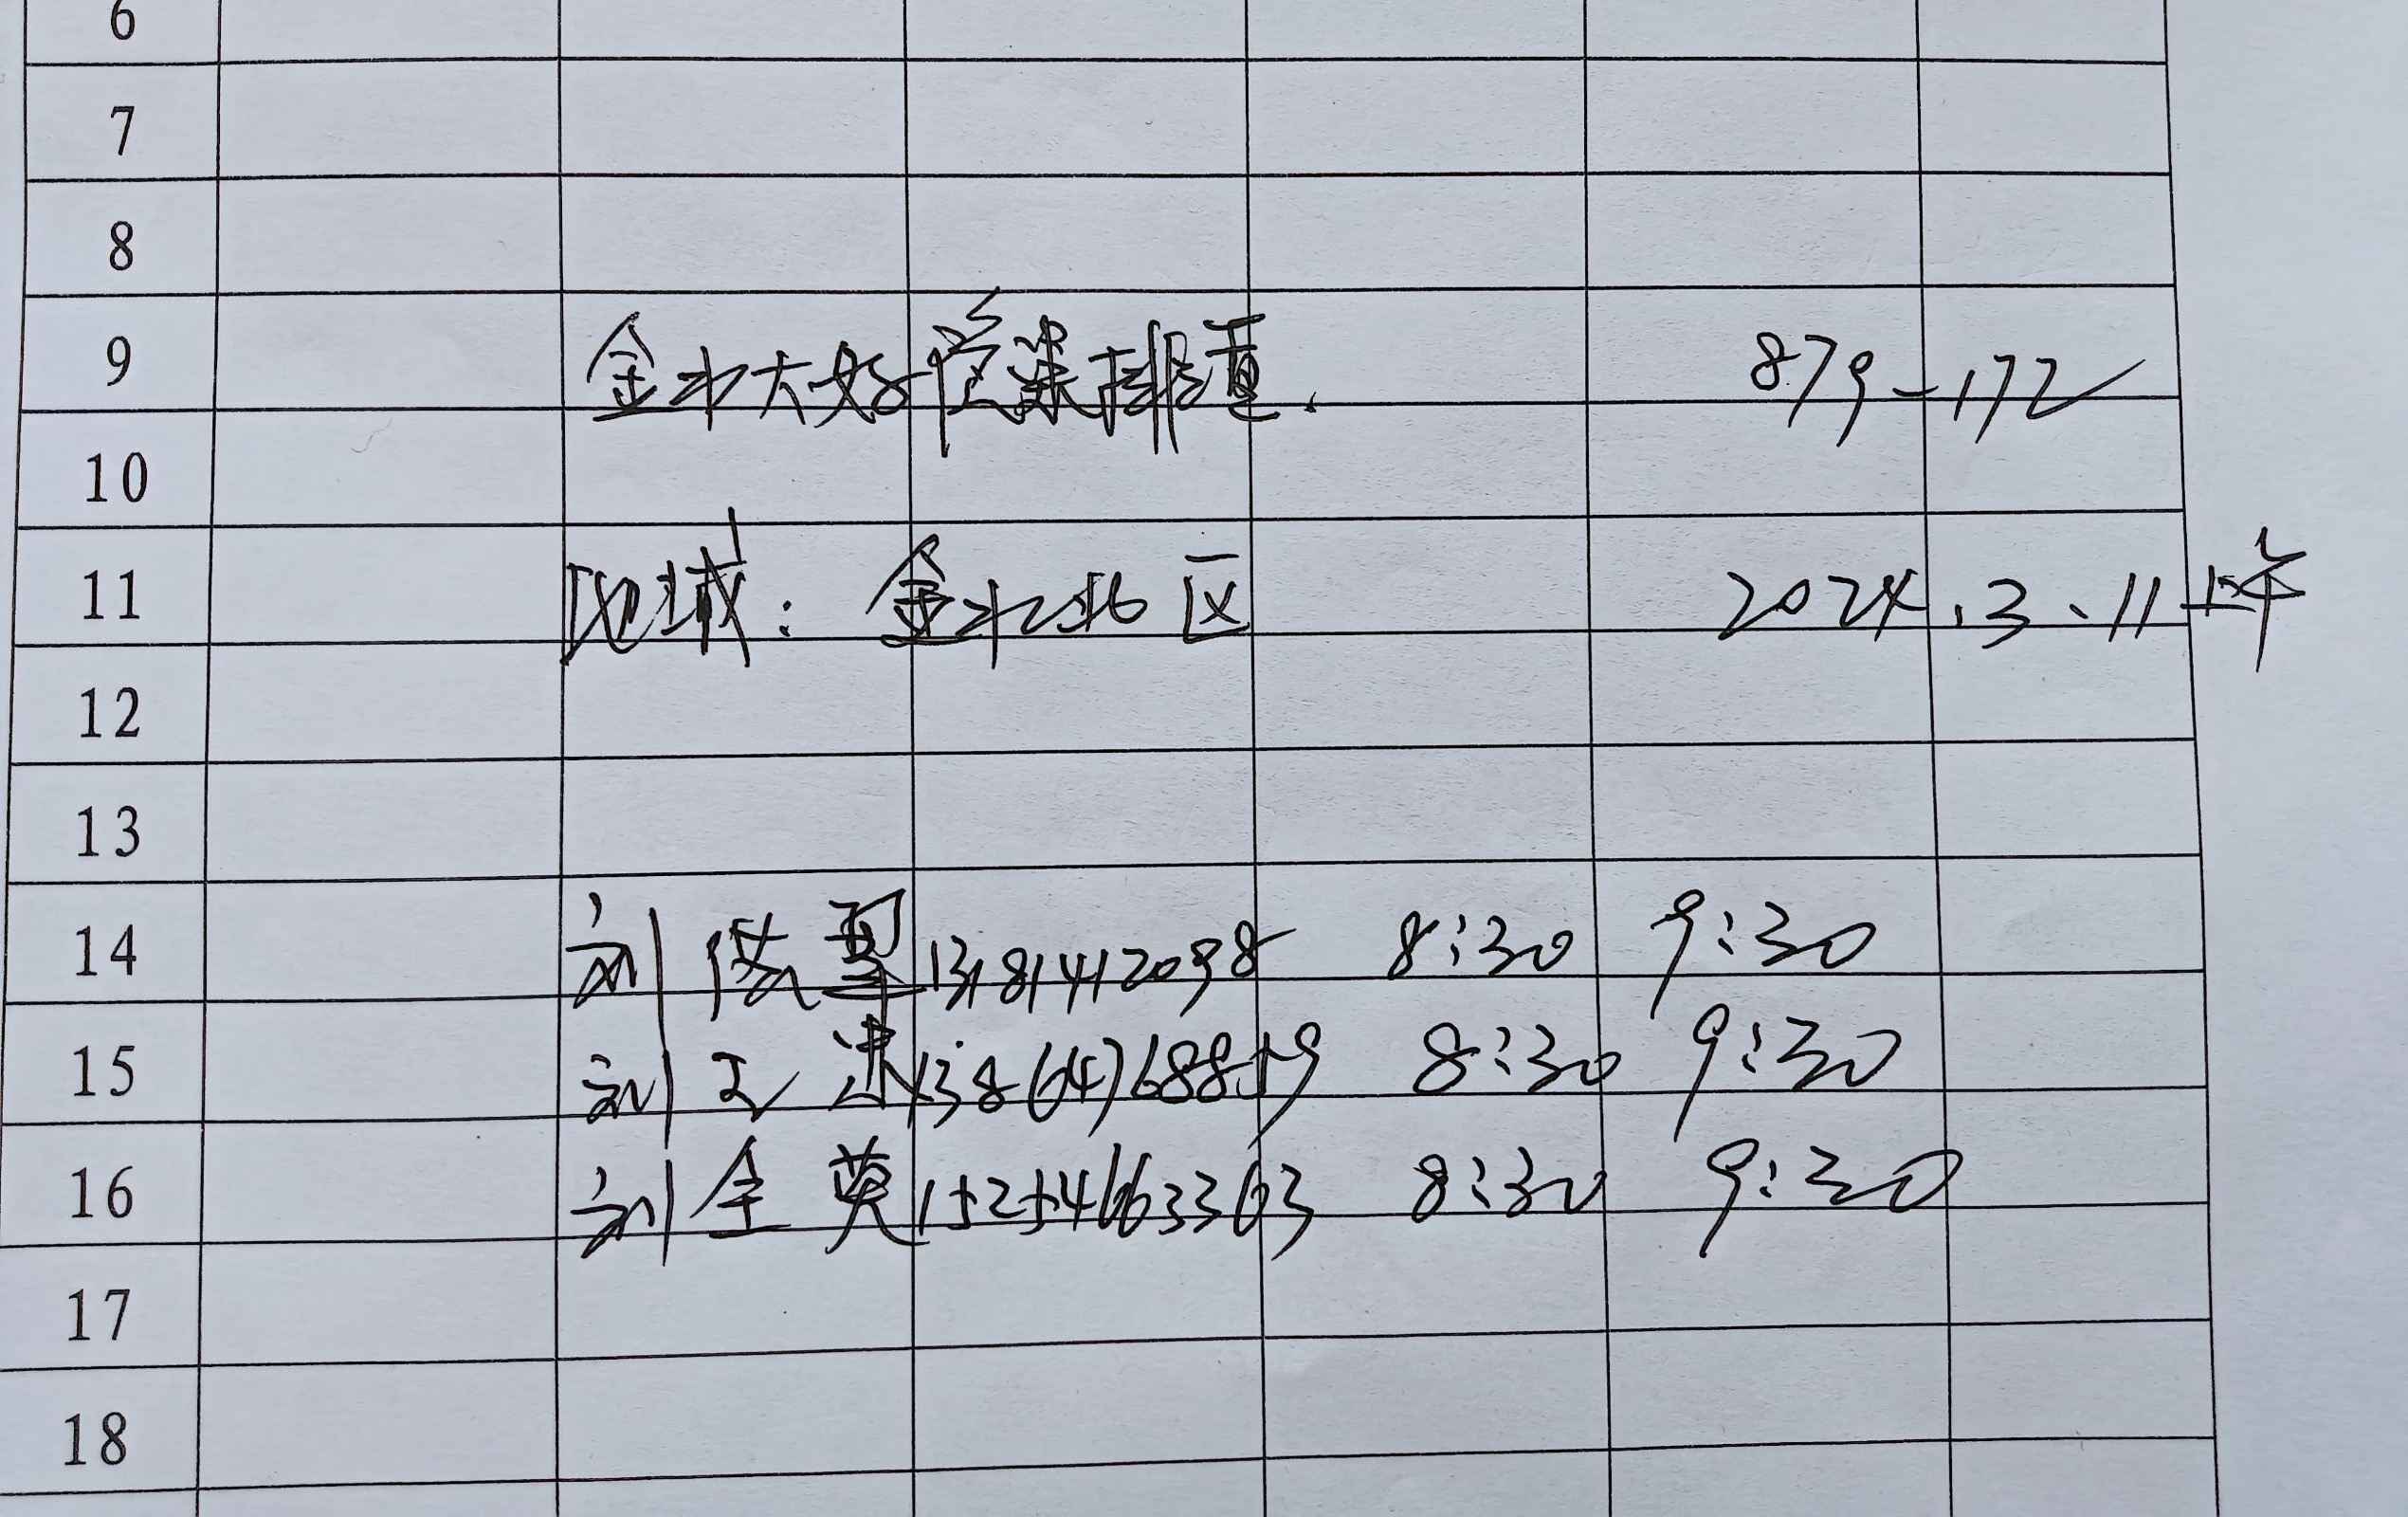 6
7
8
9 金水大好 排查. 879-172
10
11 地域: 金水北区 2024.3.11上午
12
13
14 刘俊翠 13181412098 8:30 9:30
15 刘玉 13864768859 8:30 9:30
16 刘全英 15254663363 8:30 9:30
17
18